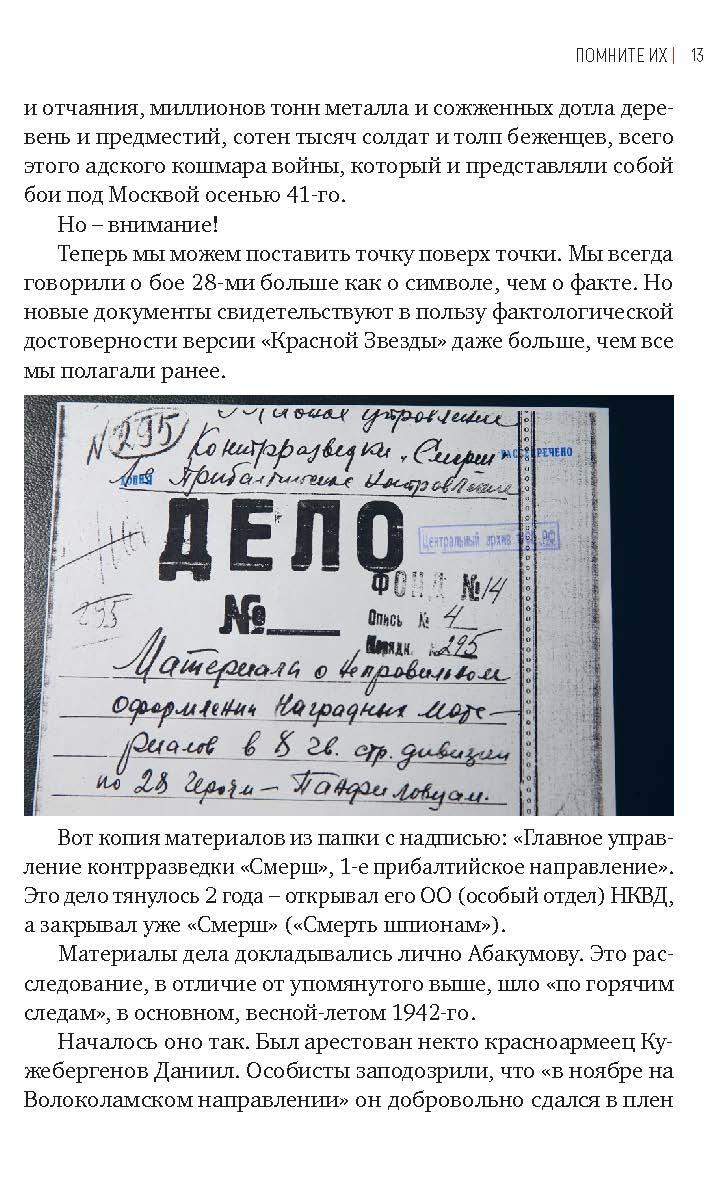 ПОМНИТЕ ИХ | 13
и отчаяния, миллионов тонн металла и сожженных дотла дере-
вень и предместий, сотен тысяч солдат и толп беженцев, всего
этого адского кошмара войны, который и представляли собой
бои под Москвой осенью 41-го.
Но – внимание!
Теперь мы можем поставить точку поверх точки. Мы всегда
говорили о бое 28-ми больше как о символе, чем о факте. Но
новые документы свидетельствуют в пользу фактологической
достоверности версии «Красной Звезды» даже больше, чем все
мы полагали ранее.
управление
N 295
Контрразведки „Смерш“
РАССЕКРЕЧЕНО
КОПИЯ
Прибалтийское направление
ДЕЛО
Центральный архив РФ
ФОНД №14
№
Опись № 4
295
Порядк. №295
Материал о неправильном
оформлении наградных мате-
риалов в 8 гв. стр. дивизии
по 28 Героям – Панфиловцам.
Вот копия материалов из папки с надписью: «Главное управ-
ление контрразведки «Смерш», 1-е прибалтийское направление».
Это дело тянулось 2 года – открывал его ОО (особый отдел) НКВД,
а закрывал уже «Смерш» («Смерть шпионам»).
Материалы дела докладывались лично Абакумову. Это рас-
следование, в отличие от упомянутого выше, шло «по горячим
следам», в основном, весной-летом 1942-го.
Началось оно так. Был арестован некто красноармеец Ку-
жебергенов Даниил. Особисты заподозрили, что «в ноябре на
Волоколамском направлении» он добровольно сдался в плен